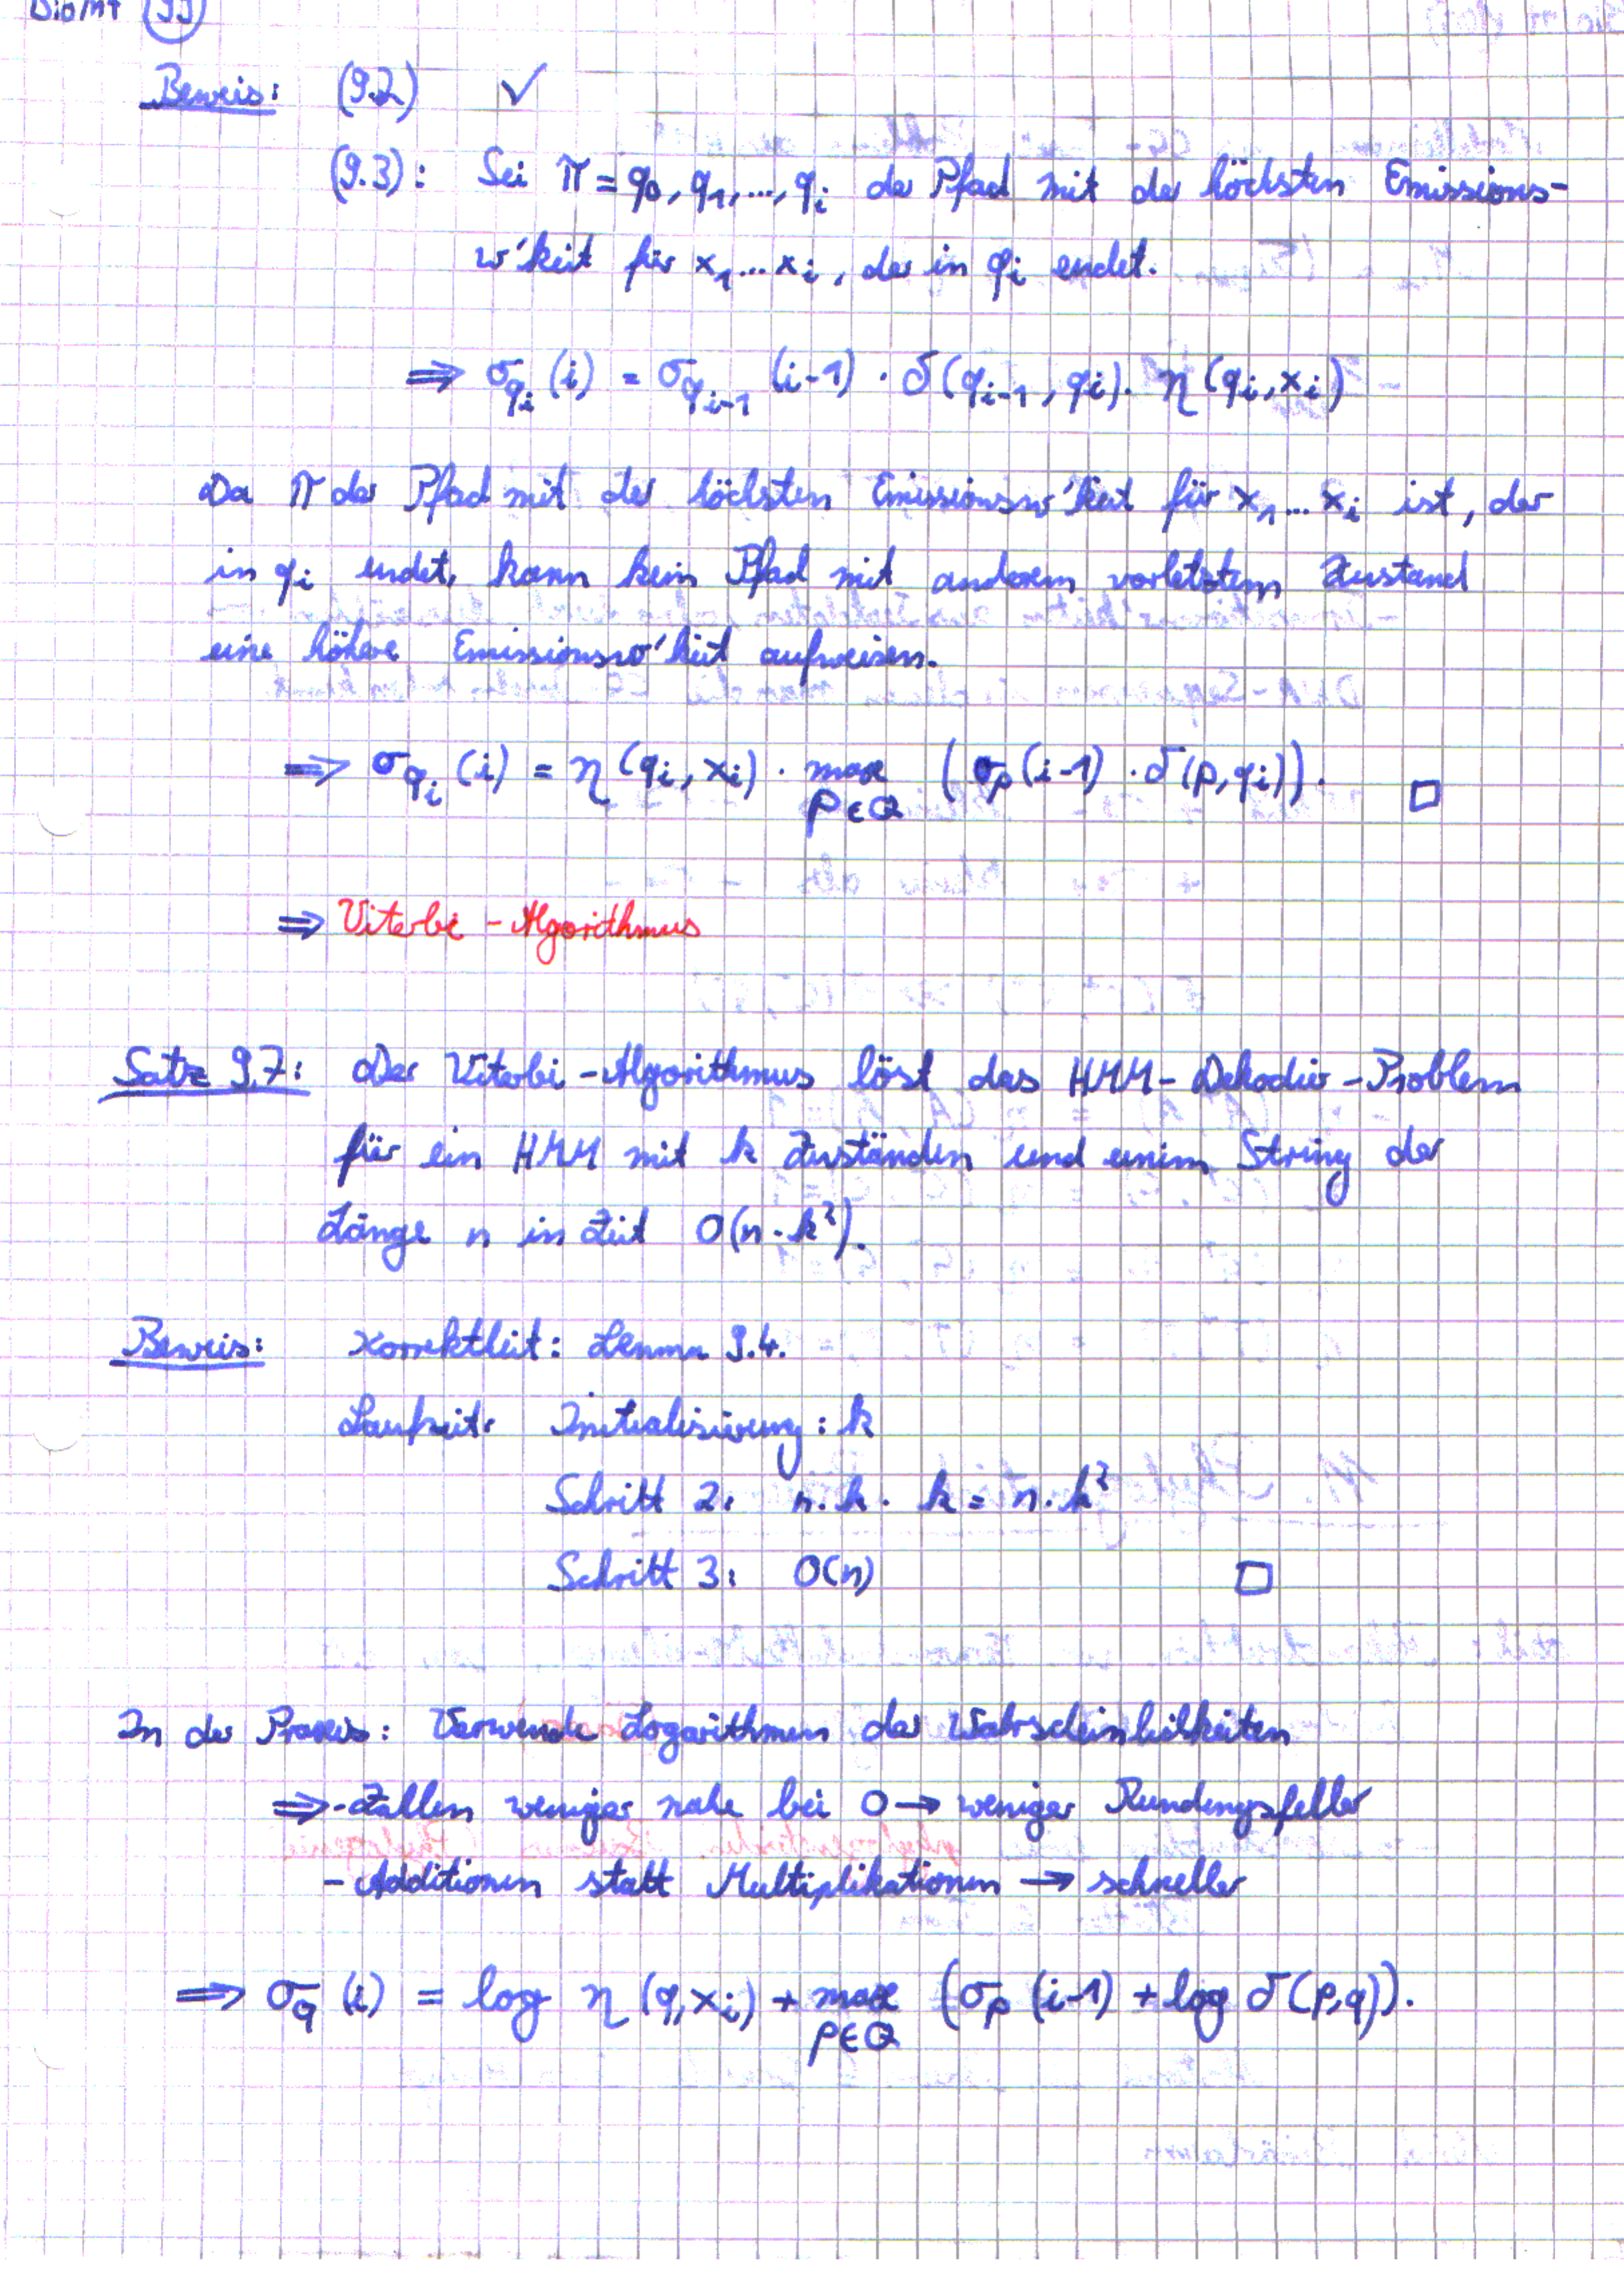 BioInf (99)
Beweis: (9.2) ✓
(9.3): Sei π = q₀, q₁, ..., qᵢ der Pfad mit der höchsten Emissions-
w'keit für x₁...xᵢ, der in qᵢ endet.
⇒ σ_{qᵢ}(i) = σ_{qᵢ₋₁}(i-1) · δ(qᵢ₋₁, qᵢ) · η(qᵢ, xᵢ)
Da π der Pfad mit der höchsten Emissionsw'keit für x₁...xᵢ ist, der
in qᵢ endet, kann kein Pfad mit anderem vorletztem Zustand
eine höhere Emissionsw'keit aufweisen.
⇒ σ_{qᵢ}(i) = η(qᵢ, xᵢ) · max_{p∈Q} (σ_p(i-1) · δ(p, qᵢ)). □
⇒ Viterbi-Algorithmus
Satz 9.7: Der Viterbi-Algorithmus löst das HMM-Dekodier-Problem
für ein HMM mit k Zuständen und einem String der
Länge n in Zeit O(n·k²).
Beweis: Korrektheit: Lemma 9.4.
Laufzeit: Initialisierung: k
Schritt 2: n·k·k = n·k²
Schritt 3: O(n) □
In der Praxis: Verwende Logarithmen der Wahrscheinlichkeiten
⇒ - Zahlen weniger nahe bei 0 → weniger Rundungsfehler
- Additionen statt Multiplikationen → schneller
⇒ σ_q(i) = log η(q, xᵢ) + max_{p∈Q} (σ_p(i-1) + log δ(p,q)).